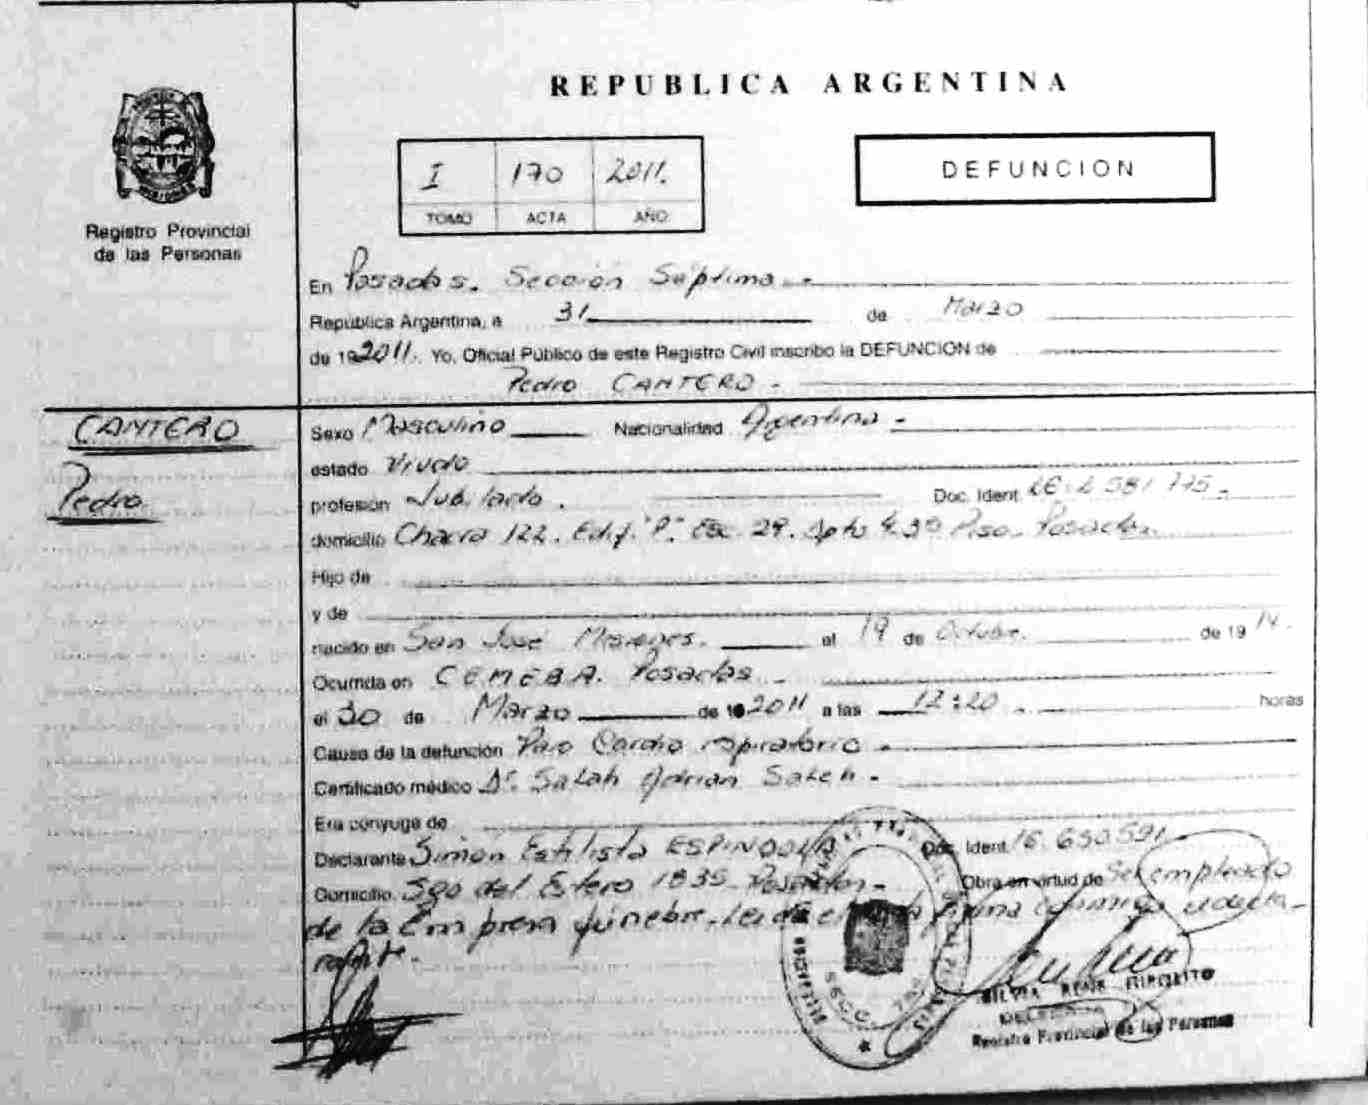 REPUBLICA ARGENTINA
I 170 2011.
TOMO ACTA AÑO
DEFUNCION
Registro Provincial
de las Personas
En Posadas. Sección Séptima.-
República Argentina, a 31 de Marzo
de 192011. Yo, Oficial Público de este Registro Civil inscribo la DEFUNCION de
Pedro CANTERO.-
CANTERO
Pedro
Sexo Masculino Nacionalidad Argentina.-
estado Viudo
profesión Jubilado. Doc. Ident. LE. 2 581 775.-
domicilio Chacra 122. Edif. "P". Esc. 29. Dpto 3º Piso. Posadas.
Hijo de
y de
nacido en San José Misiones. el 19 de Octubre. de 19 14.
Ocurrida en CEMEBA. Posadas.
el 30 de Marzo de 192011 a las 12:20.- horas
Causa de la defunción Paro Cardio respiratorio.-
Certificado médico Dr. Salah Adrian Saleh.-
Era cónyuge de
Declarante Simón Estilisto ESPINDOLA Doc. Ident. 16.630.591.-
Domicilio Sgo del Estero 1835 Posadas.- Obra en virtud de Ser empleado
de la Empresa fúnebre. Leída el acta firma conmigo el decla-
rante.
SILVIA HIPOLITO
Registro Provincial de las Personas